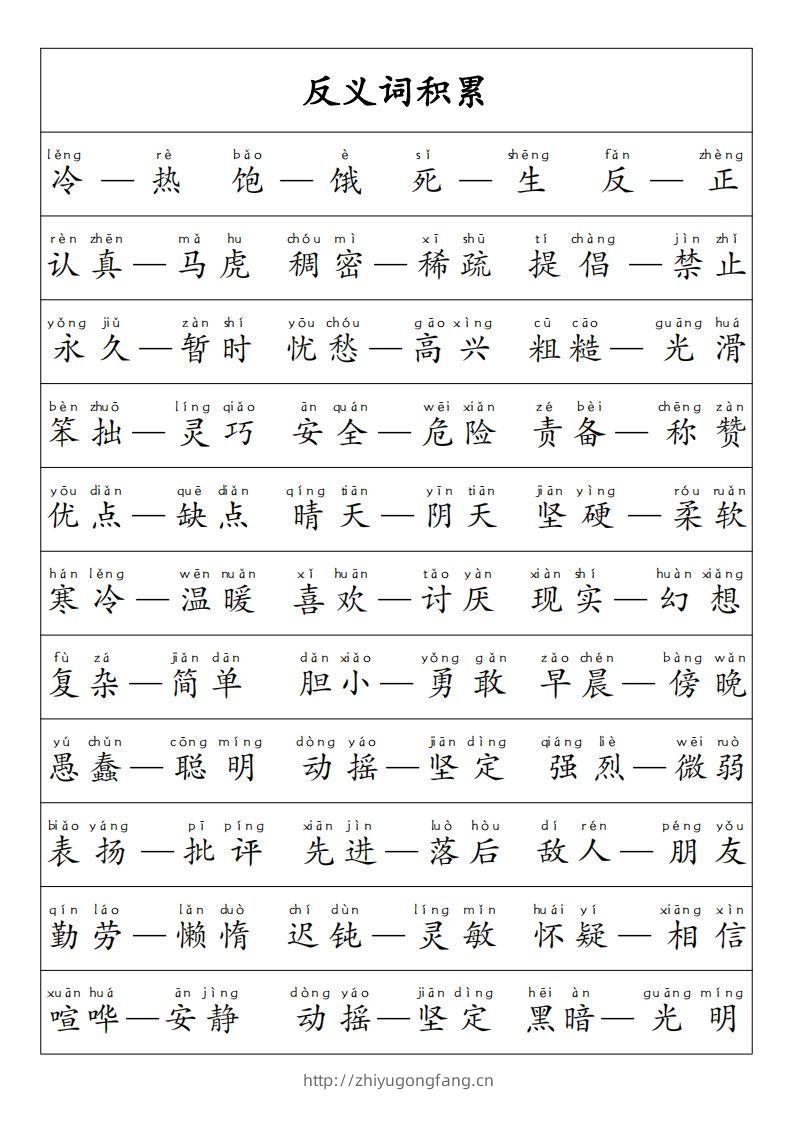 反义词积累
lěng rè bǎo è sǐ shēng fǎn zhèng
冷—热 饱—饿 死—生 反—正
rèn zhēn mǎ hu chóu mì xī shū tí chàng jìn zhǐ
认真—马虎 稠密—稀疏 提倡—禁止
yǒng jiǔ zàn shí yōu chóu gāo xìng cū cāo guāng huá
永久—暂时 忧愁—高兴 粗糙—光滑
bèn zhuō líng qiǎo ān quán wēi xiǎn zé bèi chēng zàn
笨拙—灵巧 安全—危险 责备—称赞
yōu diǎn quē diǎn qíng tiān yīn tiān jiān yìng róu ruǎn
优点—缺点 晴天—阴天 坚硬—柔软
hán lěng wēn nuǎn xǐ huān tǎo yàn xiàn shí huàn xiǎng
寒冷—温暖 喜欢—讨厌 现实—幻想
fù zá jiǎn dān dǎn xiǎo yǒng gǎn zǎo chén bàng wǎn
复杂—简单 胆小—勇敢 早晨—傍晚
yú chǔn cōng míng dòng yáo jiān dìng qiáng liè wēi ruò
愚蠢—聪明 动摇—坚定 强烈—微弱
biǎo yáng pī píng xiān jìn luò hòu dí rén péng yǒu
表扬—批评 先进—落后 敌人—朋友
qín láo lǎn duò chí dùn líng mǐn huái yí xiāng xìn
勤劳—懒惰 迟钝—灵敏 怀疑—相信
xuān huá ān jìng dòng yáo jiān dìng hēi àn guāng míng
喧哗—安静 动摇—坚定 黑暗—光明
http://zhiyugongfang.cn